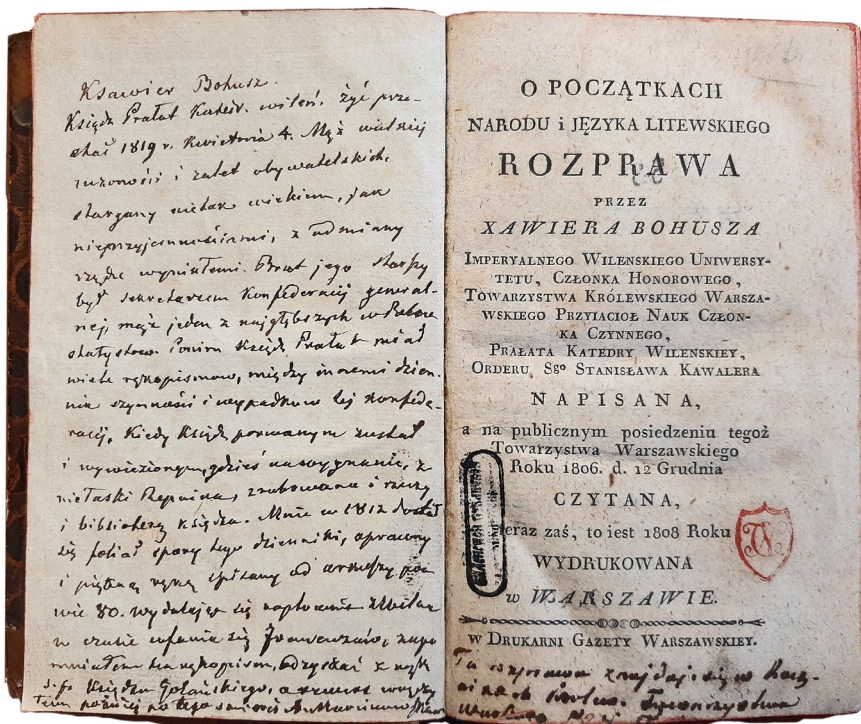 Ksawier Bohusz.
Ksiądz Prałat Kated. wileń. żyć prze-
stał 1819 r. Kwietnia 4. Mąż wielkiej
uczoności i zalet obywatelskich,
stargany nietak wiekiem, jak
nieprzyjemnościami, z odmiany
rządu wynikłemi. Brat jego starszy
był sekretarzem Konfederacij general-
nej, mąż jeden z najgłębszych w Polsce
statystów. Ksiądz Prałat miał
wiele rękopismow, między innemi dzien-
nik czynności i wypadków tej konfede-
racij. Kiedy Ksiądz porwanym został
i wywiezionym, gdzieś na wygnanie, z
niełaski Repnina, zrabowano i rzeczy
i bibliotekę księdza. Mnie w 1812 dostał
się foliał spory tego dziennika, oprawny
i piękną ręką spisany od arkuszy
80. wydalając się z Wilna
w czasie cofania się Francuzów, zapo
mniałem rękopism, odzyskać z rąk
Księdza Golańskiego, a
później po jego śmierci
O POCZĄTKACH
NARODU i JĘZYKA LITEWSKIEGO
ROZPRAWA
PRZEZ
XAWIERA BOHUSZA
IMPERYALNEGO WILENSKIEGO UNIWERSY-
TETU, CZŁONKA HONOROWEGO,
TOWARZYSTWA KRÓLEWSKIEGO WARSZA-
WSKIEGO PRZYIACIOŁ NAUK CZŁON-
KA CZYNNEGO,
PRAŁATA KATEDRY WILENSKIEY,
ORDERU Sgo STANISŁAWA KAWALERA
NAPISANA,
a na publicznym posiedzeniu tegoż
Towarzystwa Warszawskiego
Roku 1806. d. 12 Grudnia
CZYTANA,
teraz zaś, to iest 1808 Roku
WYDRUKOWANA
w WARSZAWIE.
w DRUKARNI GAZETY WARSZAWSKIEY.
Ta rozprawa znajduje się w Rocz-
nikach Towarzystwa